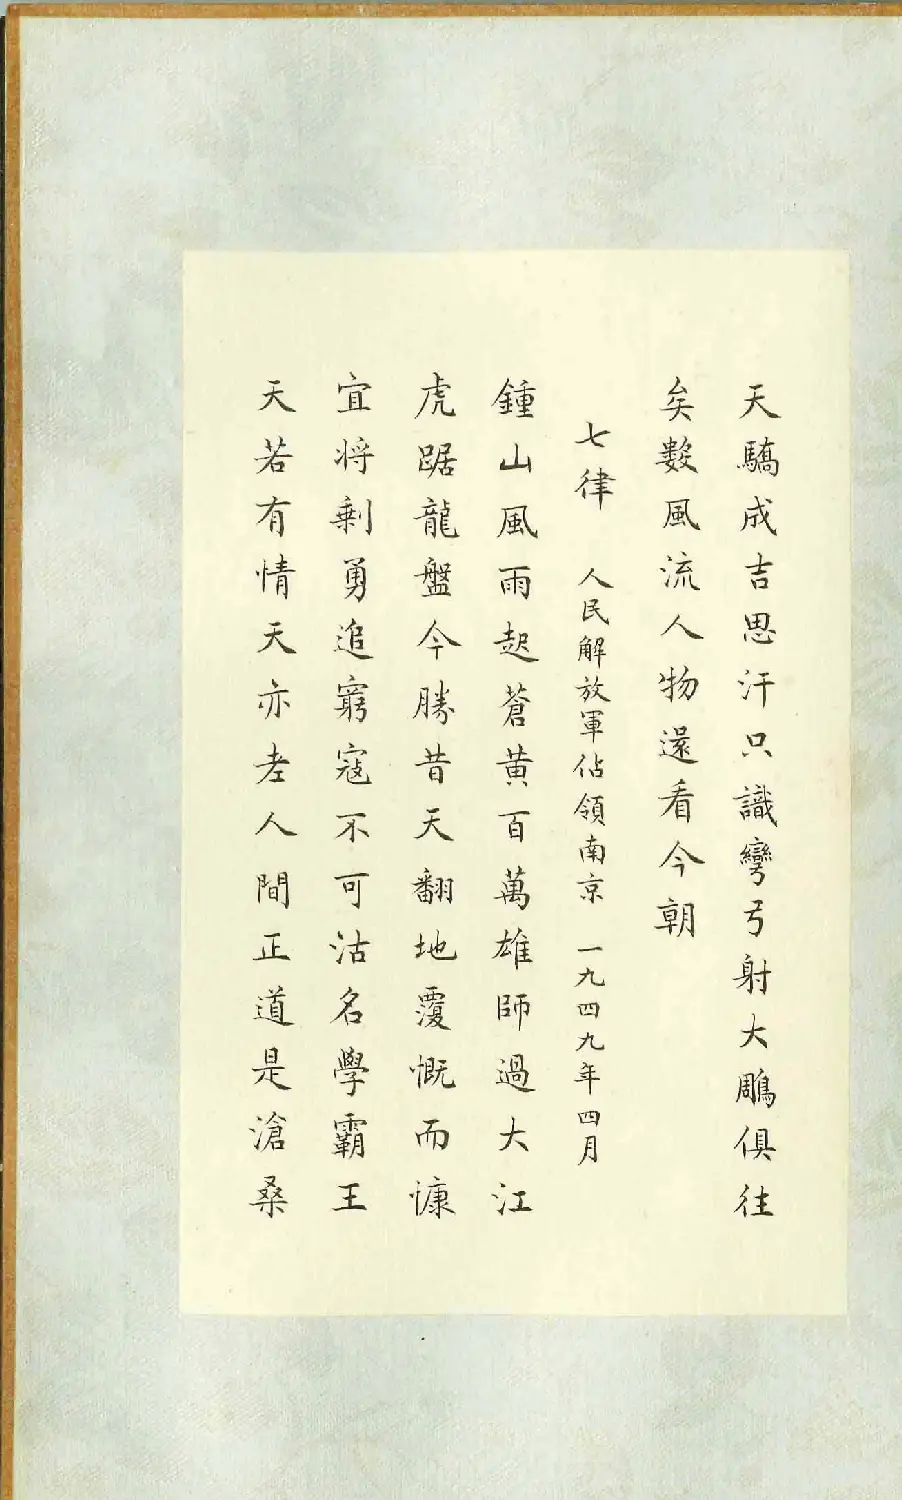 天驕成吉思汗只識彎弓射大雕俱往
矣數風流人物還看今朝
七律 人民解放軍佔領南京 一九四九年四月
鍾山風雨起蒼黃百萬雄師過大江
虎踞龍盤今勝昔天翻地覆慨而慷
宜将剩勇追窮寇不可沽名學霸王
天若有情天亦老人間正道是滄桑